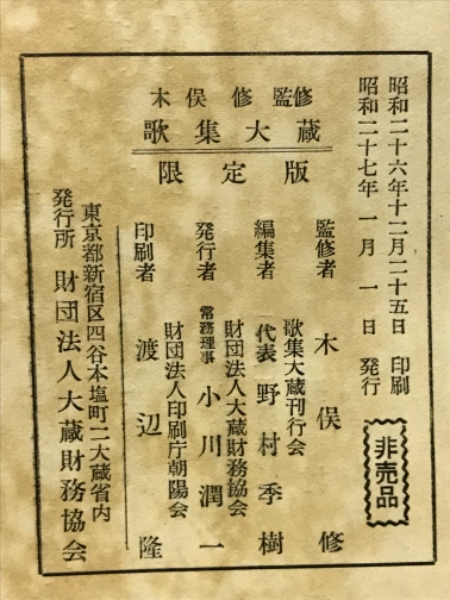 昭和二十六年十二月二十五日 印刷
昭和二十七年一月一日 発行
非売品
木俣修監修
歌集大蔵
限定版
監修者 木俣修
歌集大蔵刊行会
編集者 代表 野村季樹
財団法人大蔵財務協会
発行者 常務理事 小川潤一
財団法人印刷庁朝陽会
印刷者 渡辺隆
東京都新宿区四谷本塩町二大蔵省内
発行所 財団法人大蔵財務協会